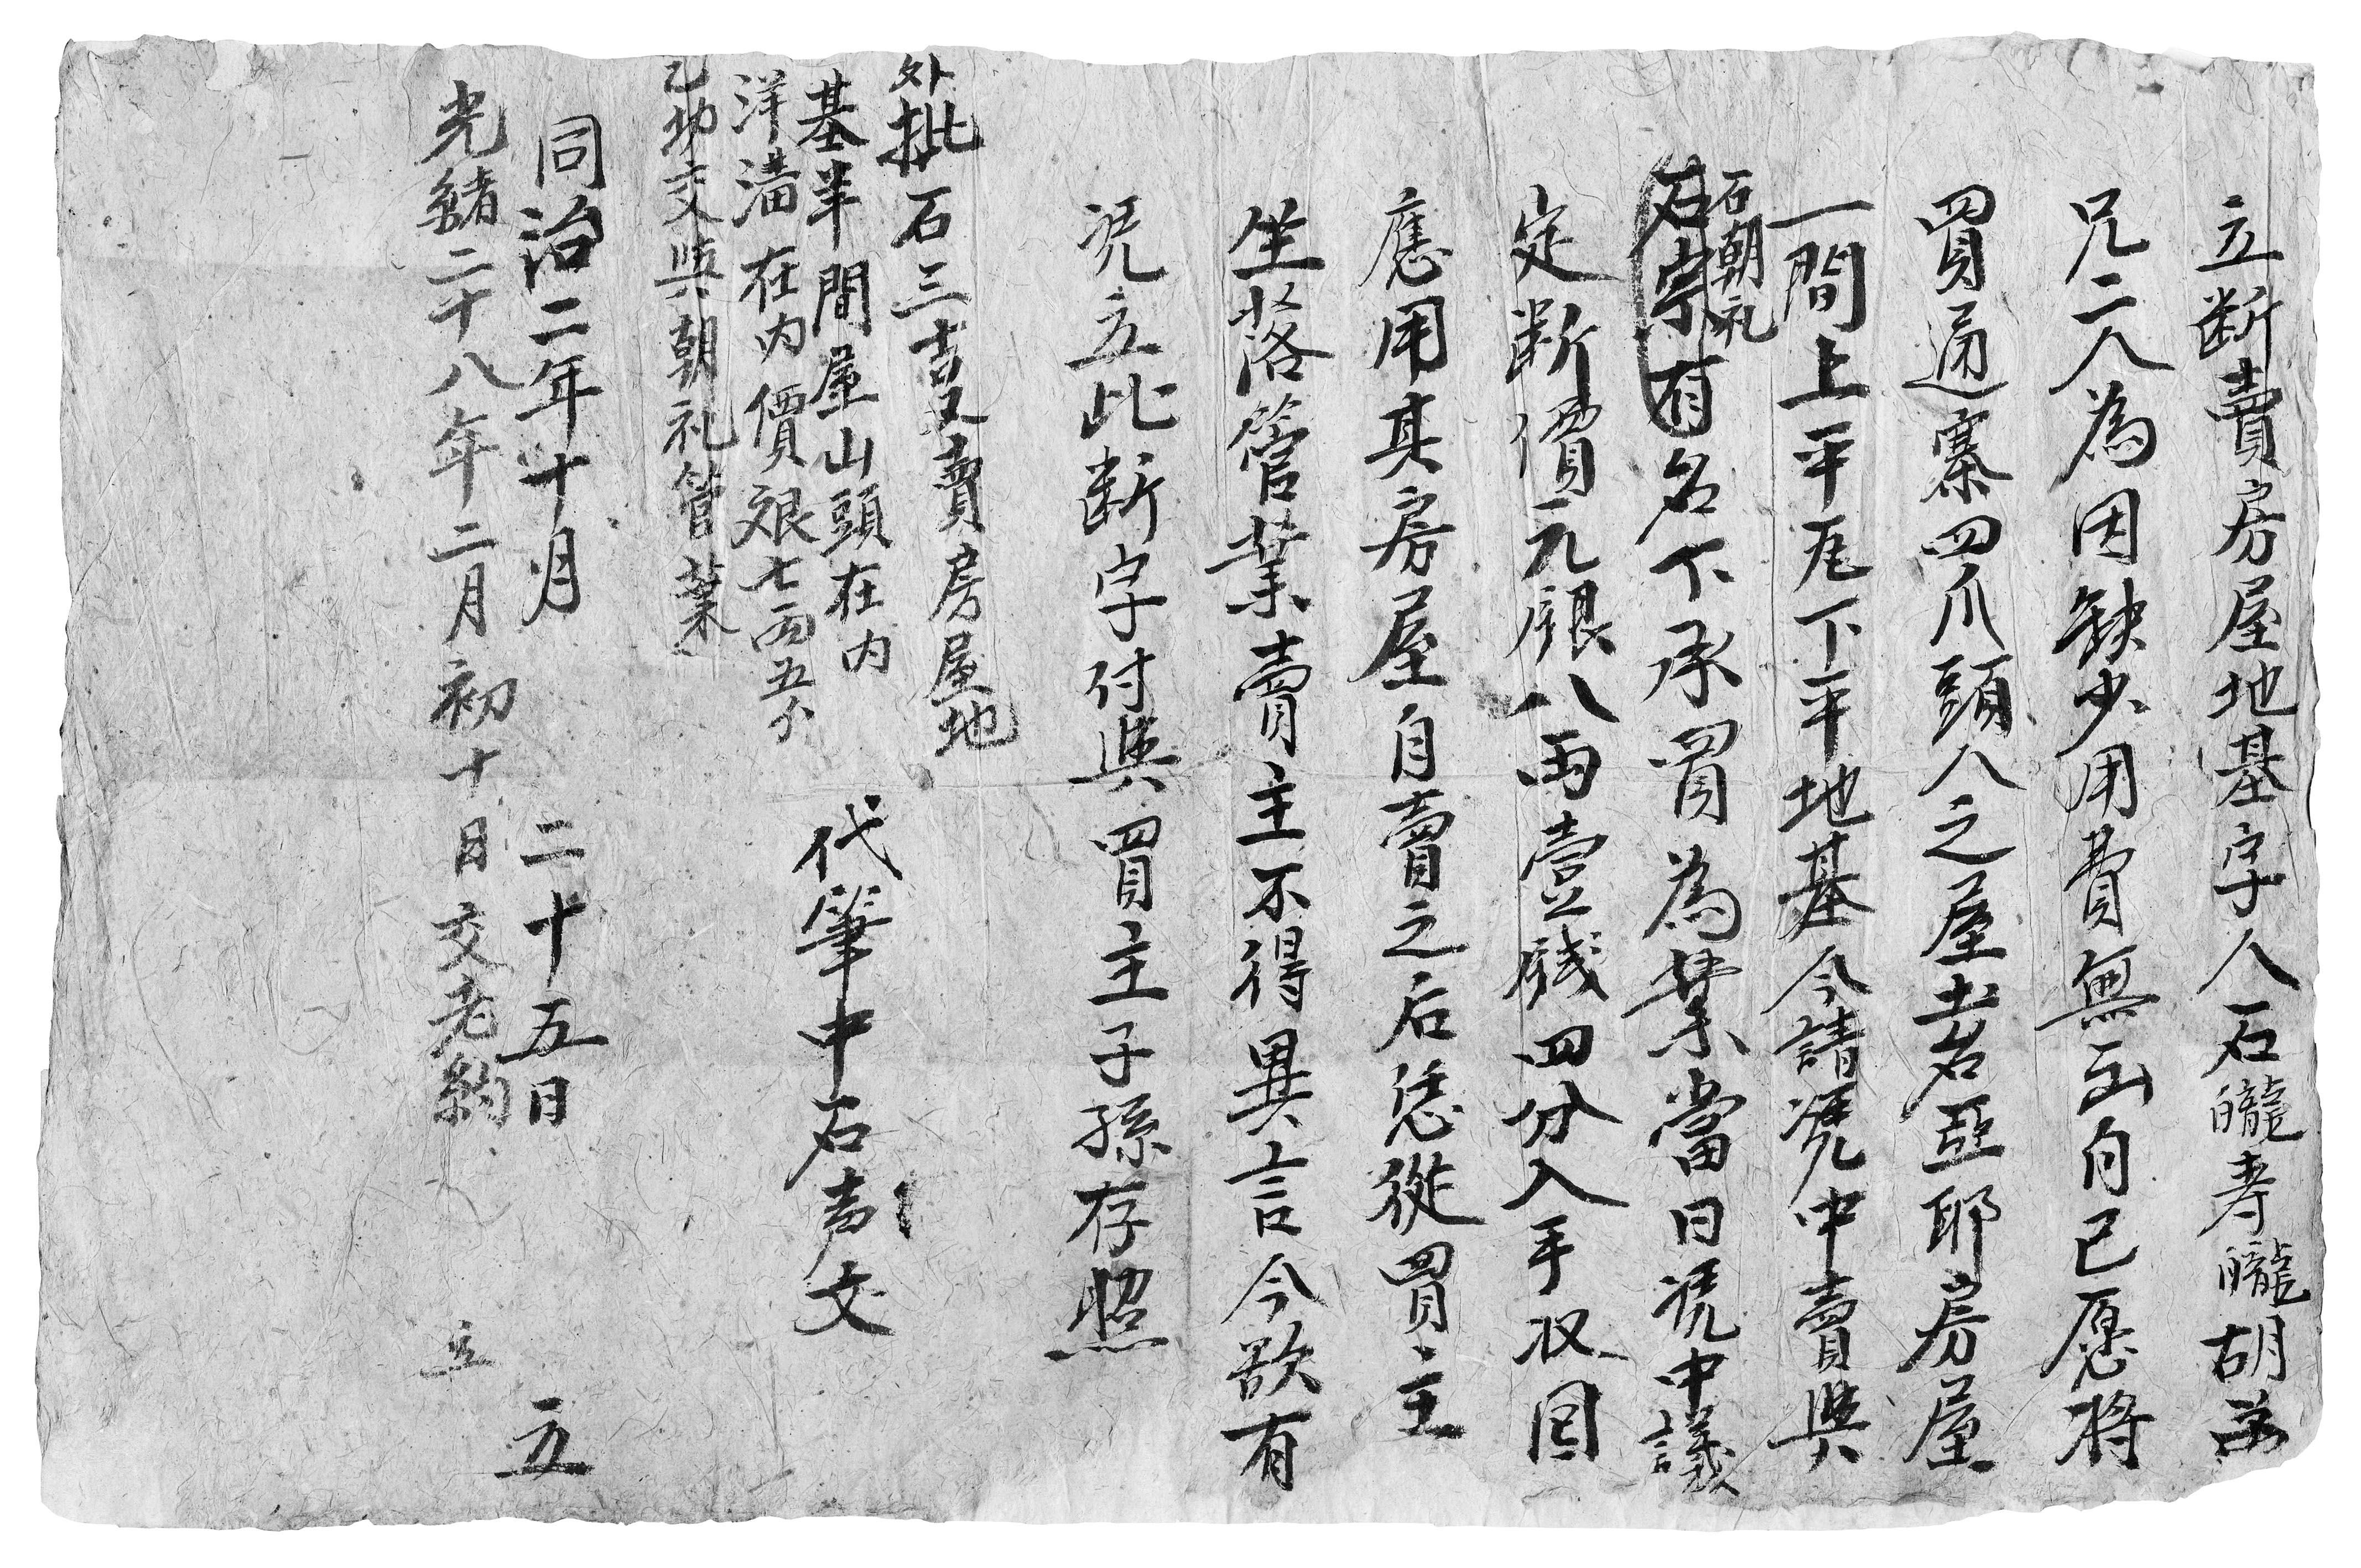 立断賣房屋地基字人石𬂄寿𬂄胡弟
兄二人為因缺少用費無出自己愿將
買過寨四爪頭人之屋出岩亞耶房屋
一間上平瓦下平地基今請凴中賣與
石朝礼
石宗有名下承買為業當日凴中議
定断價元銀八両壹錢四分入手收囬
應用其房屋自賣之后恁從買主
坐落管業賣主不得異言今欲有
凴立此断字付與買主子孫存照
外批石三吉又賣房屋地
基半間屋山頭在内
洋溝在内價艮七両五分
交與朝礼管業
代筆中石声文
同治二年十月二十五日立
光緒二十八年二月初十日交老約立